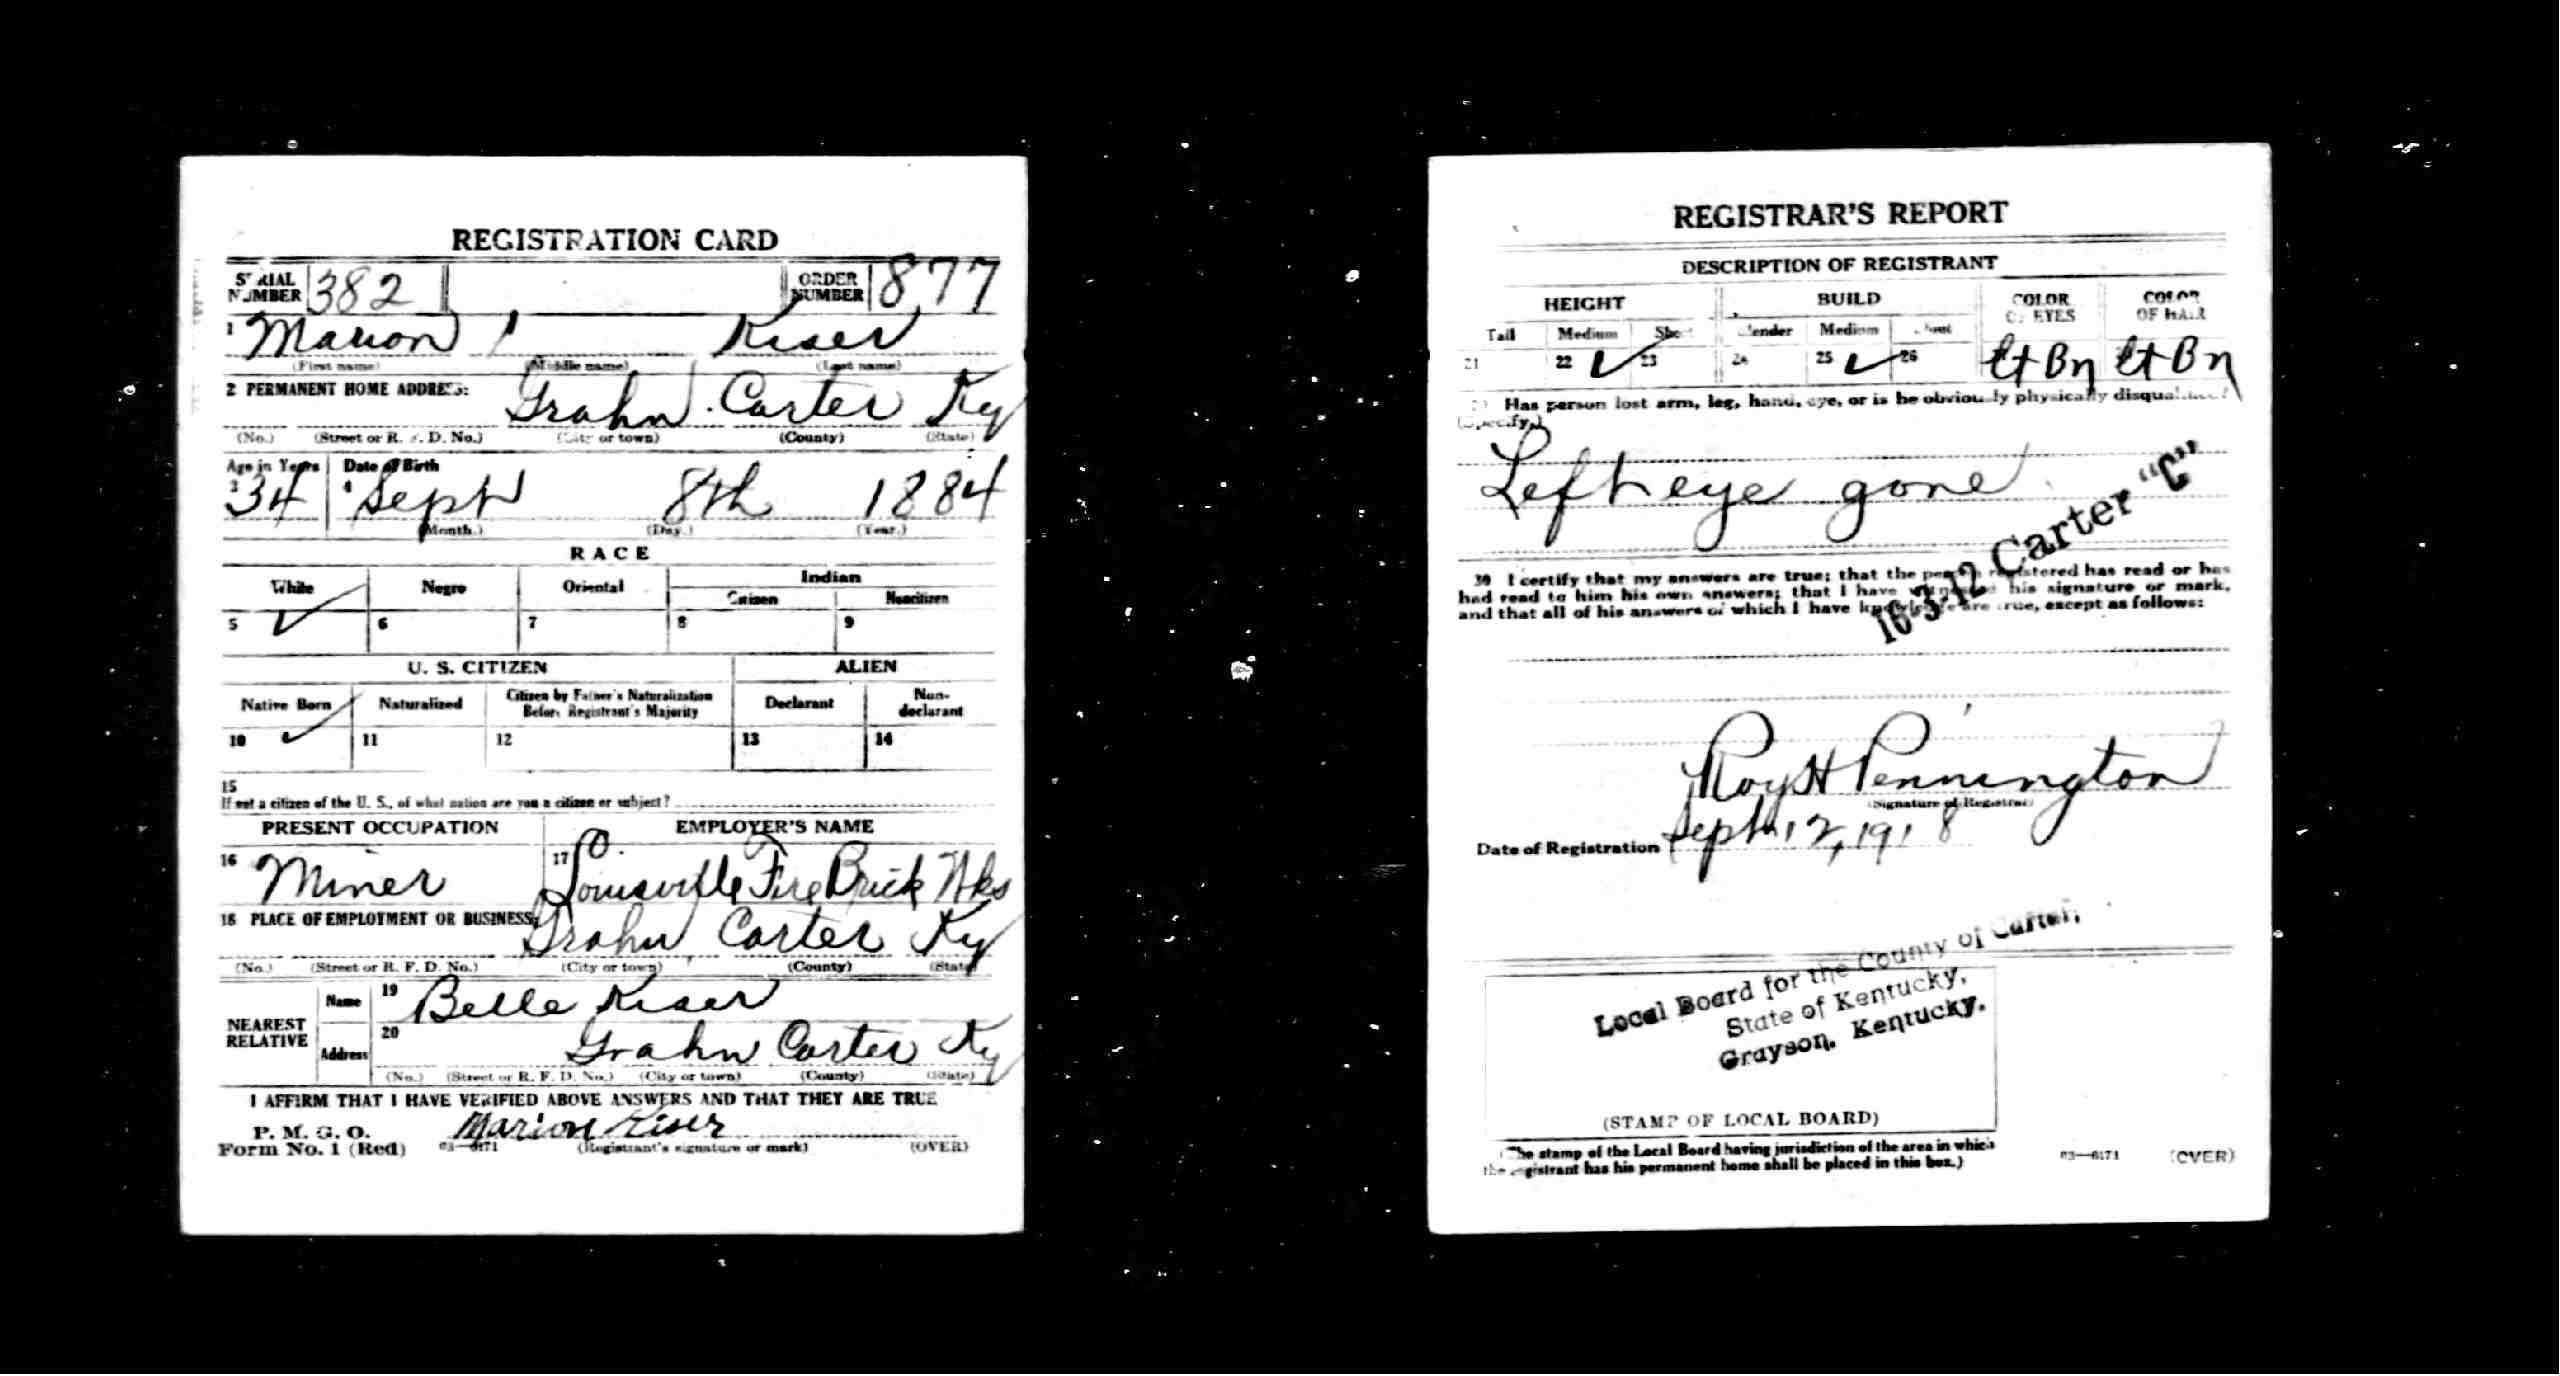 REGISTRATION CARD
SERIAL NUMBER 382 ORDER NUMBER 877
1 Marion Kiser
(First name) (Middle name) (Last name)
2 PERMANENT HOME ADDRESS:
Grahn Carter Ky
(No.) (Street or R. F. D. No.) (City or town) (County) (State)
Age in Years Date of Birth
3 34 4 Sept 8th 1884
(Month.) (Day.) (Year.)
RACE
White Negro Oriental Indian
Citizen Noncitizen
5 ✓ 6 7 8 9
U. S. CITIZEN ALIEN
Native Born Naturalized Citizen by Father's Naturalization Before Registrant's Majority Declarant Non-declarant
10 ✓ 11 12 13 14
15
If not a citizen of the U. S., of what nation are you a citizen or subject?
PRESENT OCCUPATION EMPLOYER'S NAME
16 Miner 17 Louisville Fire Brick Wks
18 PLACE OF EMPLOYMENT OR BUSINESS:
Grahn Carter Ky
(No.) (Street or R. F. D. No.) (City or town) (County) (State)
NEAREST RELATIVE
Name 19 Belle Kiser
Address 20 Grahn Carter Ky
(No.) (Street or R. F. D. No.) (City or town) (County) (State)
I AFFIRM THAT I HAVE VERIFIED ABOVE ANSWERS AND THAT THEY ARE TRUE
P. M. G. O.
Form No. 1 (Red) 03—6171 Marion Kiser
(Registrant's signature or mark) (OVER)
REGISTRAR'S REPORT
DESCRIPTION OF REGISTRANT
HEIGHT BUILD COLOR OF EYES COLOR OF HAIR
Tall Medium Short Slender Medium Stout
21 22 ✓ 23 24 25 ✓ 26 Lt Bn Lt Bn
29 Has person lost arm, leg, hand, eye, or is he obviously physically disqualified?
(Specify.)
Left eye gone
16-3-12 Carter "C"
30 I certify that my answers are true; that the person registered has read or has
had read to him his own answers; that I have witnessed his signature or mark,
and that all of his answers of which I have knowledge are true, except as follows:
Roy H Pennington
(Signature of Registrar)
Date of Registration Sept 12, 1918
Local Board for the County of Carter,
State of Kentucky,
Grayson, Kentucky.
(STAMP OF LOCAL BOARD)
(The stamp of the Local Board having jurisdiction of the area in which
the registrant has his permanent home shall be placed in this box.)
03—6171 (OVER)